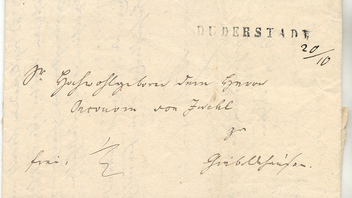 DUDERSTADT
20/10
Sr. Hochwohlgeboren dem Herrn
Oeconom von Zwehl
zu
frei. 1/2 Gieboldehausen.